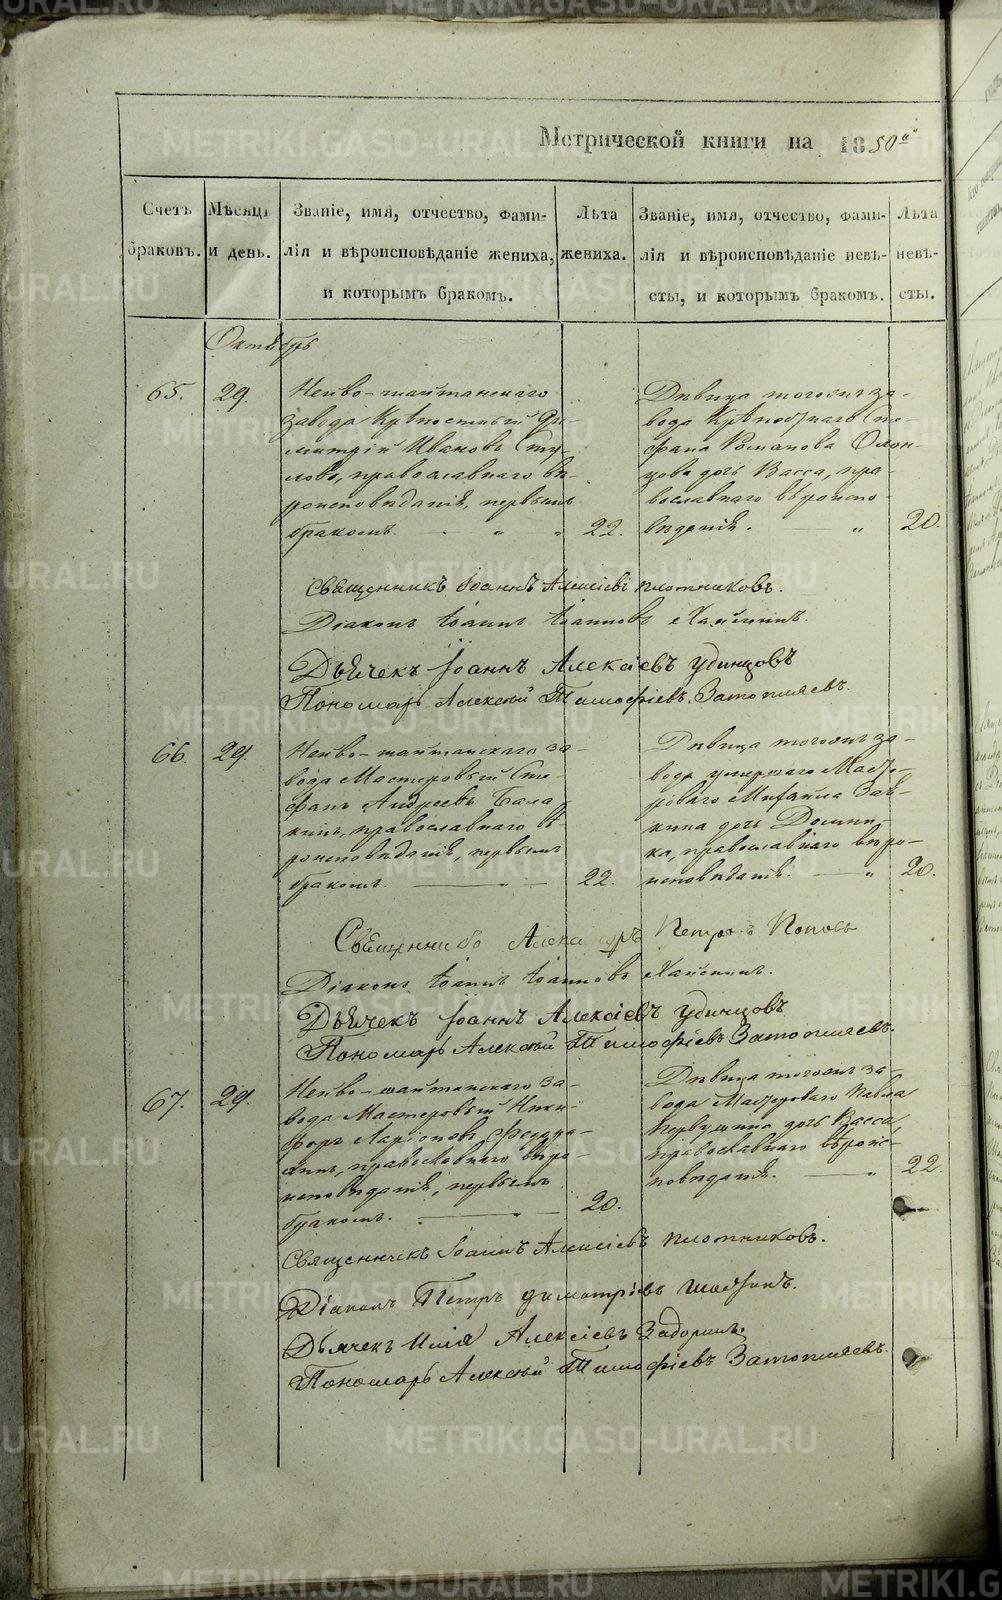 Метрической книги на 1850й
Счетъ браковъ.
Мѣсяцъ и день.
Званіе, имя, отчество, фами-
лія и вѣроисповѣданіе жениха,
и которымъ бракомъ.
Лѣта
жениха.
Званіе, имя, отчество, фами-
лія и вѣроисповѣданіе невѣ-
сты, и которымъ бракомъ.
Лѣта
невѣ-
сты.
Октябрь
65.
29.
Нейво-шайтанскаго
завода Крѣпостный Ди-
митрій Ивановъ
православнаго вѣ-
роисповѣданія, первымъ
бракомъ.
22.
Дѣвица тогожъ за-
вода Крѣпостнаго Сте-
фана Романова
дочь Васса, пра-
вославнаго вѣроиспо-
вѣданія.
20.
Священникъ Іоаннъ Алексіевъ Плотниковъ.
Діаконъ Іоаннъ Іоанновъ
Дьячекъ Іоаннъ Алексіевъ Удинцовъ
Пономарь Алексѣй Тимофіевъ Затопляевъ.
66.
29.
Нейво-шайтанскаго за-
вода Мастеровый Сте-
фанъ Андреевъ Бала-
кинъ, православнаго вѣ-
роисповѣданія, первымъ
бракомъ.
22.
Дѣвица тогожъ за-
вода умершаго Масте-
роваго Михаила Зав-
кина дочь Домни-
ка, православнаго вѣро-
исповѣданія.
20.
Священникъ Александръ Петровъ Поповъ
Діаконъ Іоаннъ Іоанновъ
Дьячекъ Іоаннъ Алексіевъ Удинцовъ
Пономарь Алексѣй Тимофіевъ Затопляевъ.
67.
29.
Нейво-шайтанскаго за-
вода Мастеровый Ники-
форъ Ларіоновъ
православнаго вѣро-
исповѣданія, первымъ
бракомъ.
20.
Дѣвица тогожъ за-
вода Мастероваго Павла
Первушина дочь Васса,
православнаго вѣроис-
повѣданія.
22.
Священникъ Іоаннъ Алексіевъ Плотниковъ.
Діаконъ Петръ Димитріевъ
Дьячекъ Илія Алексіевъ Задоринъ
Пономарь Алексѣй Тимофіевъ Затопляевъ.
METRIKI.GASO-URAL.RU